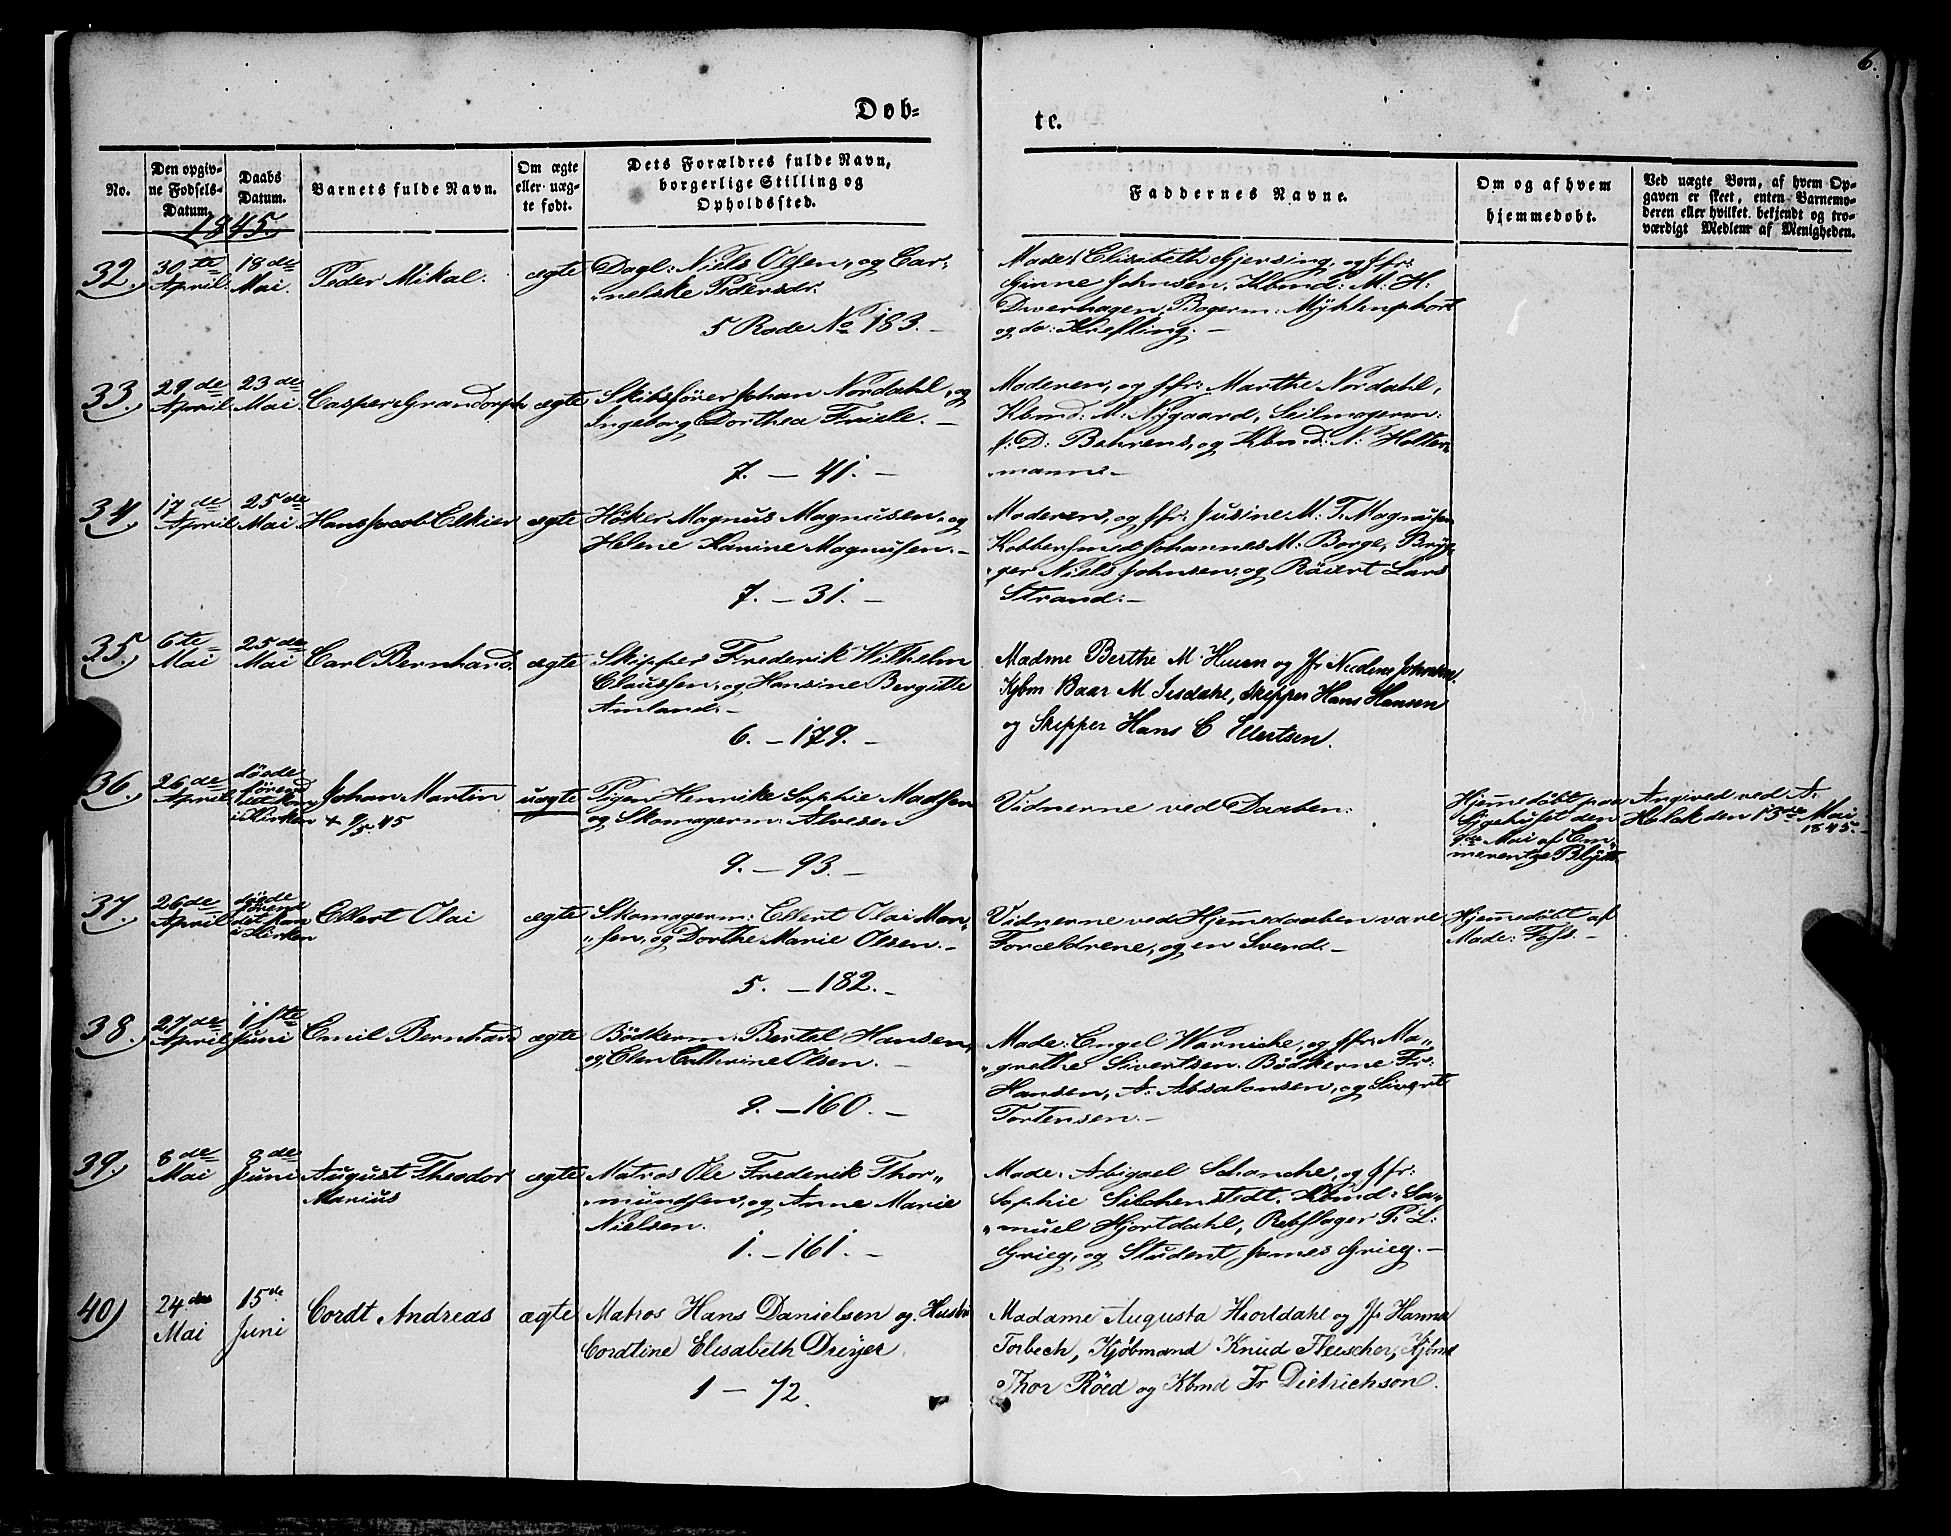 6.
Døb-
te.
No.
Den opgiv-
ne Fødsels-
Datum.
Daabs
Datum.
Barnets fulde Navn.
Om ægte
eller uæg-
te født.
Dets Forældres fulde Navn,
borgerlige Stilling og
Opholdssted.
Faddernes Navne.
Om og af hvem
hjemmedøbt.
Ved uægte Børn, af hvem Op-
gaven er skeet, enten Barnemo-
deren eller hvilket bekjendt og tro-
værdigt Medlem af Menigheden.
1845.
32.)
30te
April.
18de
Mai.
Peder Mikal.
ægte
Dagl: Niels Olsen, og Cor-
"nelske Pedersdr:
5 Rode No 183. -
Made: Elisabeth Gjersing, og Jfr:
Ginne Johnsen. Kbmd: M: H:
Dwerhagen, Bagerm:
og do: Krefting. -
33.)
29de
April
23de
Mai.
Casper Grandorph
ægte
Skibsfører Johan Nordahl, og
Ingeborg Dorthea Friele. -
7. - 41. -
Moderen, og Jfr: Marthe Nordahl,
Kbmd: M: Nygaard, Seilmagerm:
J: D: Behrens, og Kbmd: N: Holter-
"mann. -
34.)
17de
April
25de
Mai
Hans Jacob Elkier
ægte
Høker Magnus Magnusen, og
Helene Karine Magnusen. -
7. - 31. -
Moderen, og Jfr: Jusine M. T. Magnusen
Kobbersmed Johannes M: Borge, Bryg-
"ger Niels Johnsen, og Røiert Lars
Strand. -
35.)
6te
Mai
25de
Mai
Carl Bernhard.
ægte
Skipper Frederik Wilhelm
Claussen, og Hansine Bergitte
Amland. -
6. - 179. -
Madme Berthe M. og Jfr
Kjbm Baar M Isdahl, Skipper Hans Hansen
og Skipper Hans C Ellertsen.
36.)
26de
April
døde
førend
det kom
i Kirken
Johan Martin
+ 9/5 45
uægte
Pigen Henrike Sophie Madsen
og Skomagerm: Alvesen
9. - 93. -
Vidnerne ved Daaben:
Hjemedøbt paa
Sygehuset den
9de Mai af Em-
merentze Blytt.
Angived ved A:
Holck den 13de Mai
1845. -
37.)
26de
April
døde
førend
det kom
i Kirken
Ellert Olai
ægte
Skomagerm: Ellert Olai Mon-
"sen, og Dorthe Marie Olsen. -
5. - 182. -
Vidnerne ved Hjemedaaben vare
Forældrene, og en Svend. -
Hjemedøbt af
Made: Foss. -
38.)
27de
April
1ste
Juni
Emil Bernhard
ægte
Bødkerm: Bertel Hansen,
og Elen Cathrine Olsen. -
9. - 160. -
Made: Engel Warniche, og Jfr: Ma-
"grethe Sivertsen. Bødkerne Fr:
Hansen, A: Absalonsen, og Sivert
Tortensen. -
39.)
8de
Mai
8de
Juni
August Theodor
Marius
ægte
Matros Ole Frederik Thor-
"mundsen, og Anne Marie
Nielsen.
1. - 161. -
Made: Abigael Schanche, og Jfr:
Sophie Silchenstedt. Kbmd: Sa-
"muel Hjortdahl, Rebslager P. L:
Grieg, og Student James Grieg. -
40)
24de
Mai
15de
Juni
Cordt Andreas
ægte
Matros Hans Danielsen og Hustru
Cordtine Elisabeth Dreyer.
1 - 72.
Madame Augusta Hjortdahl og Jfr Hanna
Torbech, Kjøbmand Knud Fleischer, Kjbmd
Thor Røed og Kbmd Fr Dietrichson.